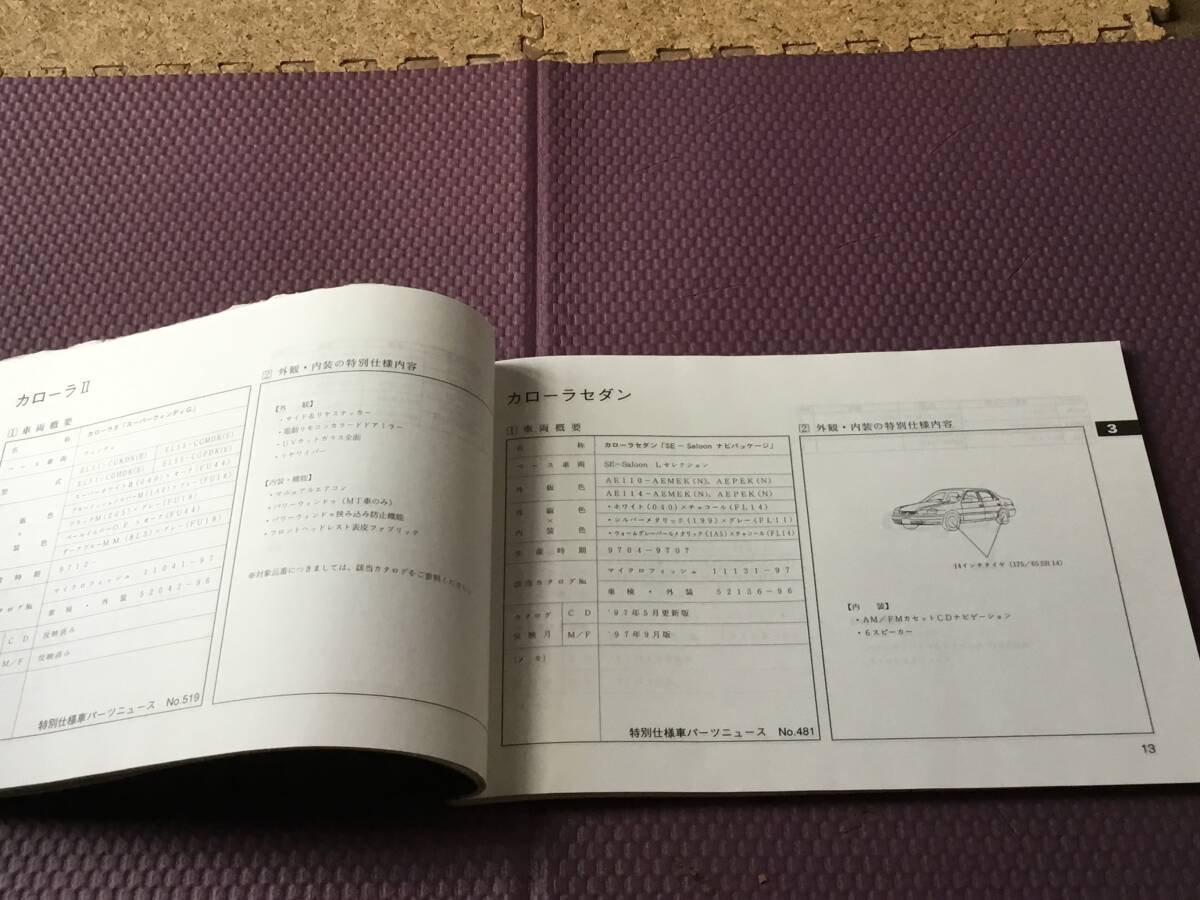 カローラⅡ
①車両概要
名 称 カローラⅡ「スーパーウィンディG」
ベース車両 ウィンディ
型 式 EL51-CGKDK(E) EL53-CGMDK(E)
EL51-CGHDK(E) EL55-CGPDK(E)
スーパーホワイトⅡ(040)×オーク(FU44)
9712-
マイクロフィッシュ 11041-97
車検・外装 52042-96
CD 反映済み
M/F 反映済み
特別仕様車パーツニュース No.519
② 外観・内装の特別仕様内容
【外 観】
・サイド&リヤステッカー
・電動リモコンカラードドアミラー
・UVカットガラス全面
・リヤワイパー
【内装・機能】
・マニュアルエアコン
・パワーウィンドゥ(MT車のみ)
・パワーウィンドゥ挟み込み防止機能
・フロントヘッドレスト表皮ファブリック
※対象品番につきましては、該当カタログをご参照ください。
カローラセダン
① 車両概要
名 称 カローラセダン「SE-Saloon ナビパッケージ」
ベース車両 SE-Saloon Lセレクション
AE110-AEMEK(N)、AEPEK(N)
AE114-AEMEK(N)、AEPEK(N)
外観色×内装色 ・ホワイト(040)×チャコール(FL14)
・シルバーメタリック(199)×グレー(FL11)
・ウォームグレーパールメタリック(1A5)×チャコール(FL14)
生産時期 9704-9707
該当カタログ№ マイクロフィッシュ 11131-97
車検・外装 52136-96
カタログ CD '97年5月更新版
反映月 M/F '97年9月版
(メモ)
特別仕様車パーツニュース No.481
② 外観・内装の特別仕様内容
14インチタイヤ(175/65SR14)
【内 装】
・AM/FMカセットCDナビゲーション
・6スピーカー
3
13